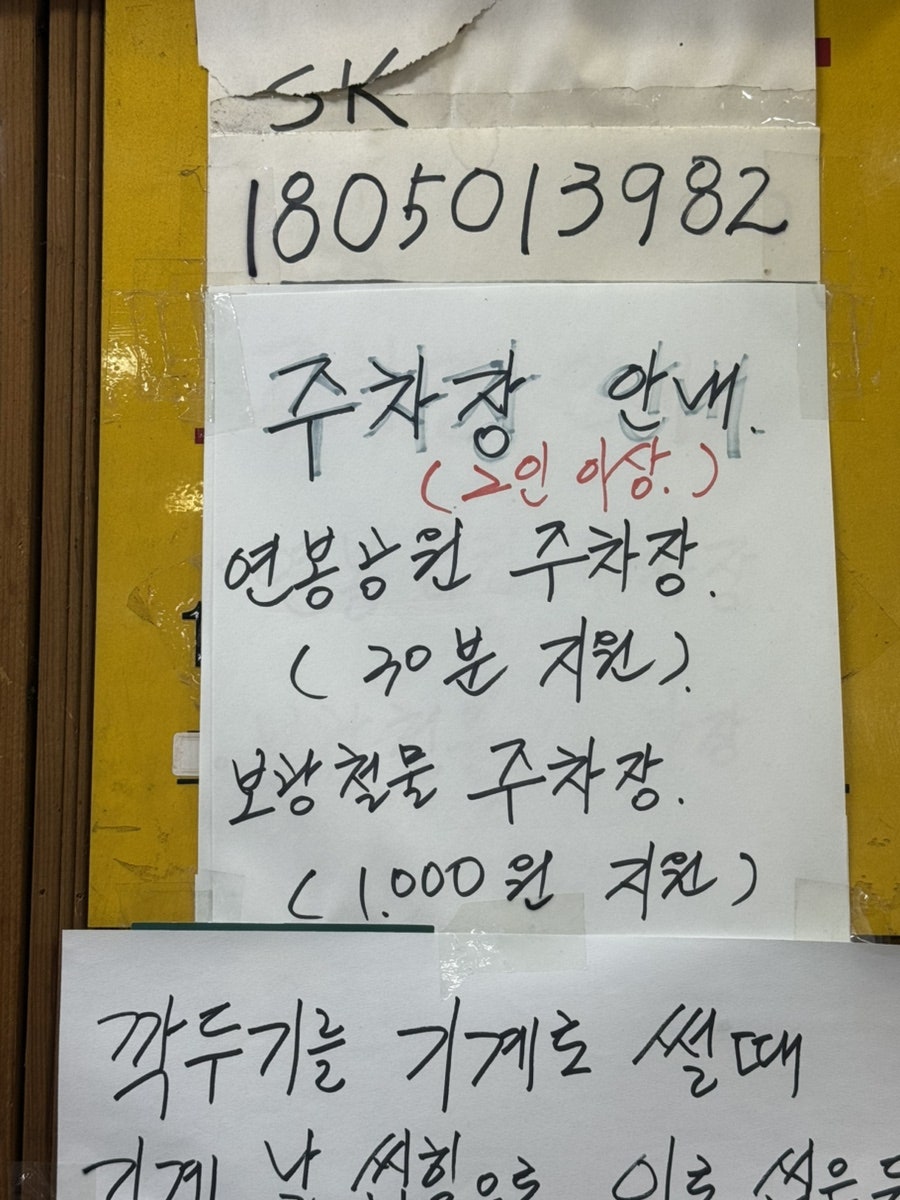 SK
1805013982
주차장 안내.
(2인 이상.)
연봉공원 주차장.
(30분 지원).
보광철물 주차장.
(1.000원 지원)
깍두기를 기계로 썰때
기계 날 씹힘으로